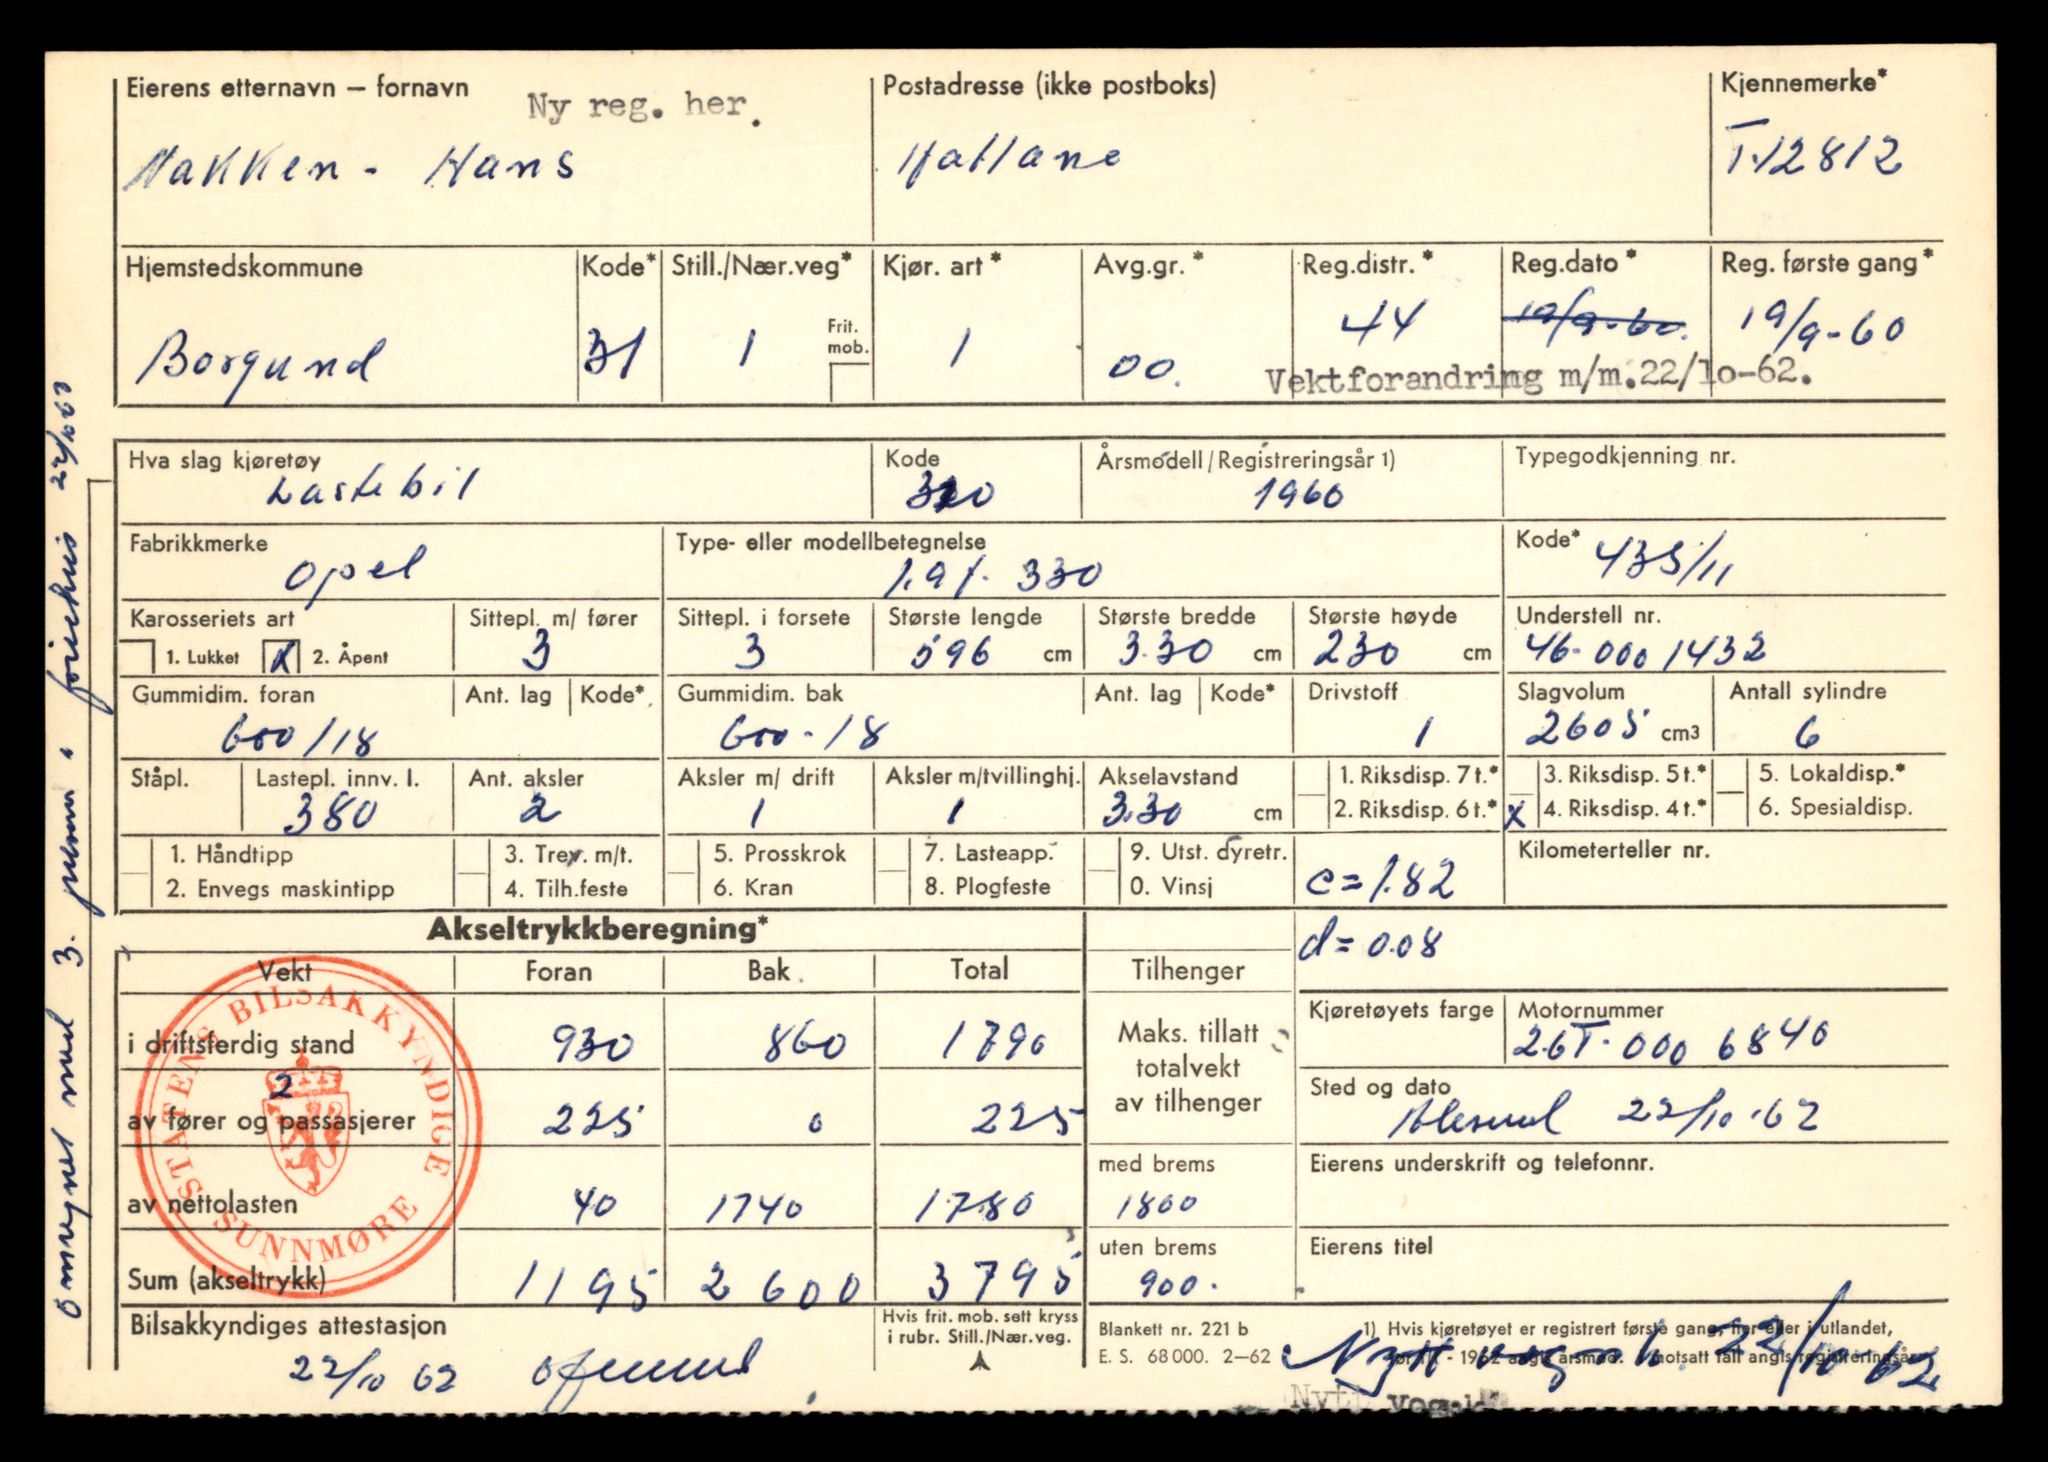 Eierens etternavn — fornavn
Ny reg. her.
Postadresse (ikke postboks)
Kjennemerke*
Hakken - Hans
Hatlane
T-12812
Hjemstedskommune
Kode*
Still./Nær.veg*
Kjør. art*
Avg.gr.*
Reg.distr.*
Reg.dato*
Reg. første gang*
Borgund
31
1
Frit. mob.
1
00.
44
19/9-60.
19/9-60
Vektforandring m/m.22/10-62.
Hva slag kjøretøy
Lastebil
Kode
320
Årsmodell/Registreringsår 1)
1960
Typegodkjenning nr.
Fabrikkmerke
Opel
Type- eller modellbetegnelse
1.9 t. 330
Kode*
435/11
Karosseriets art
1. Lukket
X 2. Åpent
Sittepl. m/ fører
3
Sittepl. i forsete
3
Største lengde
596 cm
Største bredde
3.30 cm
Største høyde
230 cm
Understell nr.
46-000 1432
Gummidim. foran
600/18
Ant. lag
Kode*
Gummidim. bak
600-18
Ant. lag
Kode*
Drivstoff
1
Slagvolum
2605 cm3
Antall sylindre
6
Ståpl.
Lastepl. innv. l.
380
Ant. aksler
2
Aksler m/ drift
1
Aksler m/tvillinghj.
1
Akselavstand
3.30 cm
1. Riksdisp. 7 t.*
2. Riksdisp. 6 t.*
3. Riksdisp. 5 t.*
X 4. Riksdisp. 4 t.*
5. Lokaldisp.*
6. Spesialdisp.
1. Håndtipp
2. Envegs maskintipp
3. Trev. m/t.
4. Tilh.feste
5. Prosskrok
6. Kran
7. Lasteapp.
8. Plogfeste
9. Utst. dyretr.
0. Vinsj
c = 1.82
Kilometerteller nr.
Akseltrykkberegning*
d = 0.08
Vekt
Foran
Bak
Total
Tilhenger
i driftsferdig stand
930
860
1790
Maks. tillatt
totalvekt
av tilhenger
Kjøretøyets farge
Motornummer
2.6T-000 6840
2
av fører og passasjerer
225
0
225
Sted og dato
Alesund 22/10-62
av nettolasten
40
1740
1780
med brems
1800
Eierens underskrift og telefonnr.
Sum (akseltrykk)
1195
2600
3795
uten brems
900.
Eierens titel
STATENS BILSAKKYNDIGE
SUNNMØRE
Bilsakkyndiges attestasjon
22/10 62
Hvis frit. mob. sett kryss
i rubr. Still./Nær.veg.
Blankett nr. 221 b
E. S. 68 000. 2—62
1) Hvis kjøretøyet er registrert første gang, her eller i utlandet,
før 1/1 - 1962 angis årsmod. I motsatt fall angis registreringsår.
Nytt vognk. 22/10-62
Nytt vogn.k
omregnet med 3. person i førerhus 22/10 62